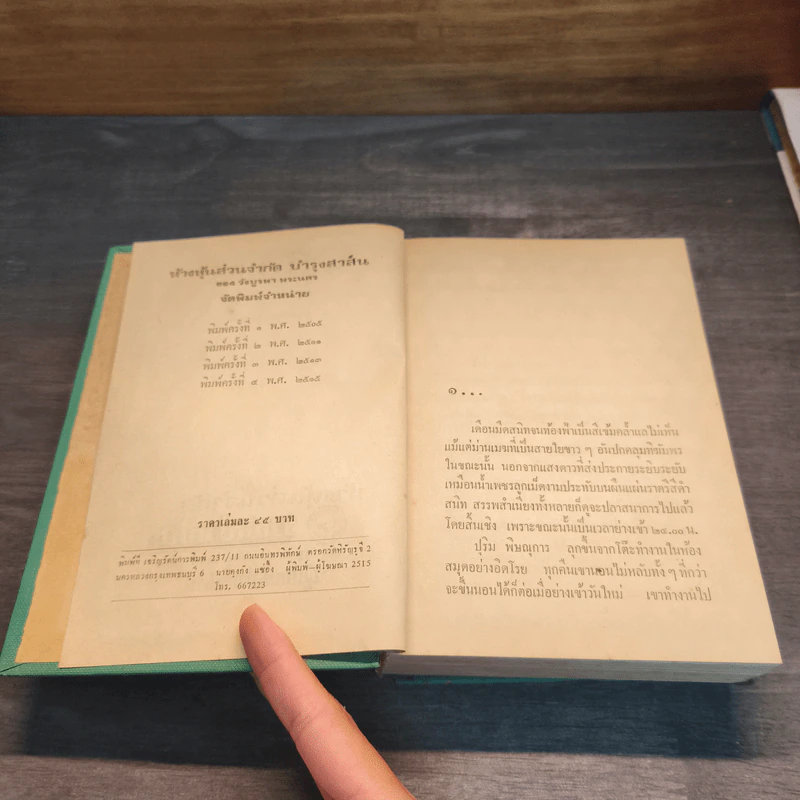 ห้างหุ้นส่วนจำกัด บำรุงสาส์น
๓๑๑ วังบูรพา พระนคร
จัดพิมพ์จำหน่าย
พิมพ์ครั้งที่ ๑ พ.ศ. ๒๕๐๕
พิมพ์ครั้งที่ ๒ พ.ศ. ๒๕๑๑
พิมพ์ครั้งที่ ๓ พ.ศ. ๒๕๑๓
พิมพ์ครั้งที่ ๔ พ.ศ. ๒๕๑๕
ราคาเล่มละ ๔๕ บาท
พิมพ์ที่ เจริญรัตน์การพิมพ์ 237/11 ถนนอินทรพิทักษ์ ตรอกวัดหิรัญรูจี 2
นครหลวงกรุงเทพธนบุรี 6 นายคุงกัง แซ่อึ้ง ผู้พิมพ์—ผู้โฆษณา 2515
โทร. 667223
๑...
เดือนมืดสนิทจนท้องฟ้าเป็นสีเข้มคล้ำแลไม่เห็น
แม้แต่ม่านเมฆที่เป็นสายใยขาว ๆ อันปกคลุมทิฆัมพร
ในขณะนั้น นอกจากแสงดาวที่ส่งประกายระยิบระยับ
เหมือนน้ำเพชรลูกเม็ดงามประทับบนผืนแผ่นราตรีสีดำ
สนิท สรรพสำเนียงทั้งหลายก็ดูจะปลาสนาการไปแล้ว
โดยสิ้นเชิง เพราะขณะนั้นเป็นเวลาย่างเข้า ๒๔.๐๐ น.
ปุริม พิษณุการ ลุกขึ้นจากโต๊ะทำงานในห้อง
สมุดอย่างอิดโรย ทุกคืนเขานอนไม่หลับทั้ง ๆ ที่กว่า
จะขึ้นนอนได้ก็ต่อเมื่อย่างเข้าวันใหม่ เขาทำงานไป